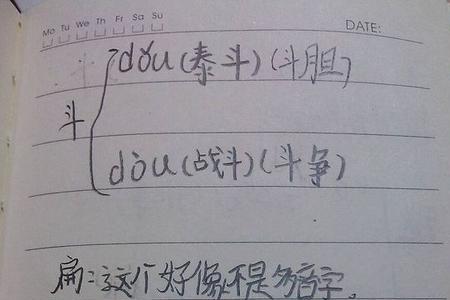 Mo Tu We Th Fr Sa Su
DATE:
dǒu(泰斗)(斗胆)
斗
dòu(战斗)(斗争)
扁:这个好像不是多音字。